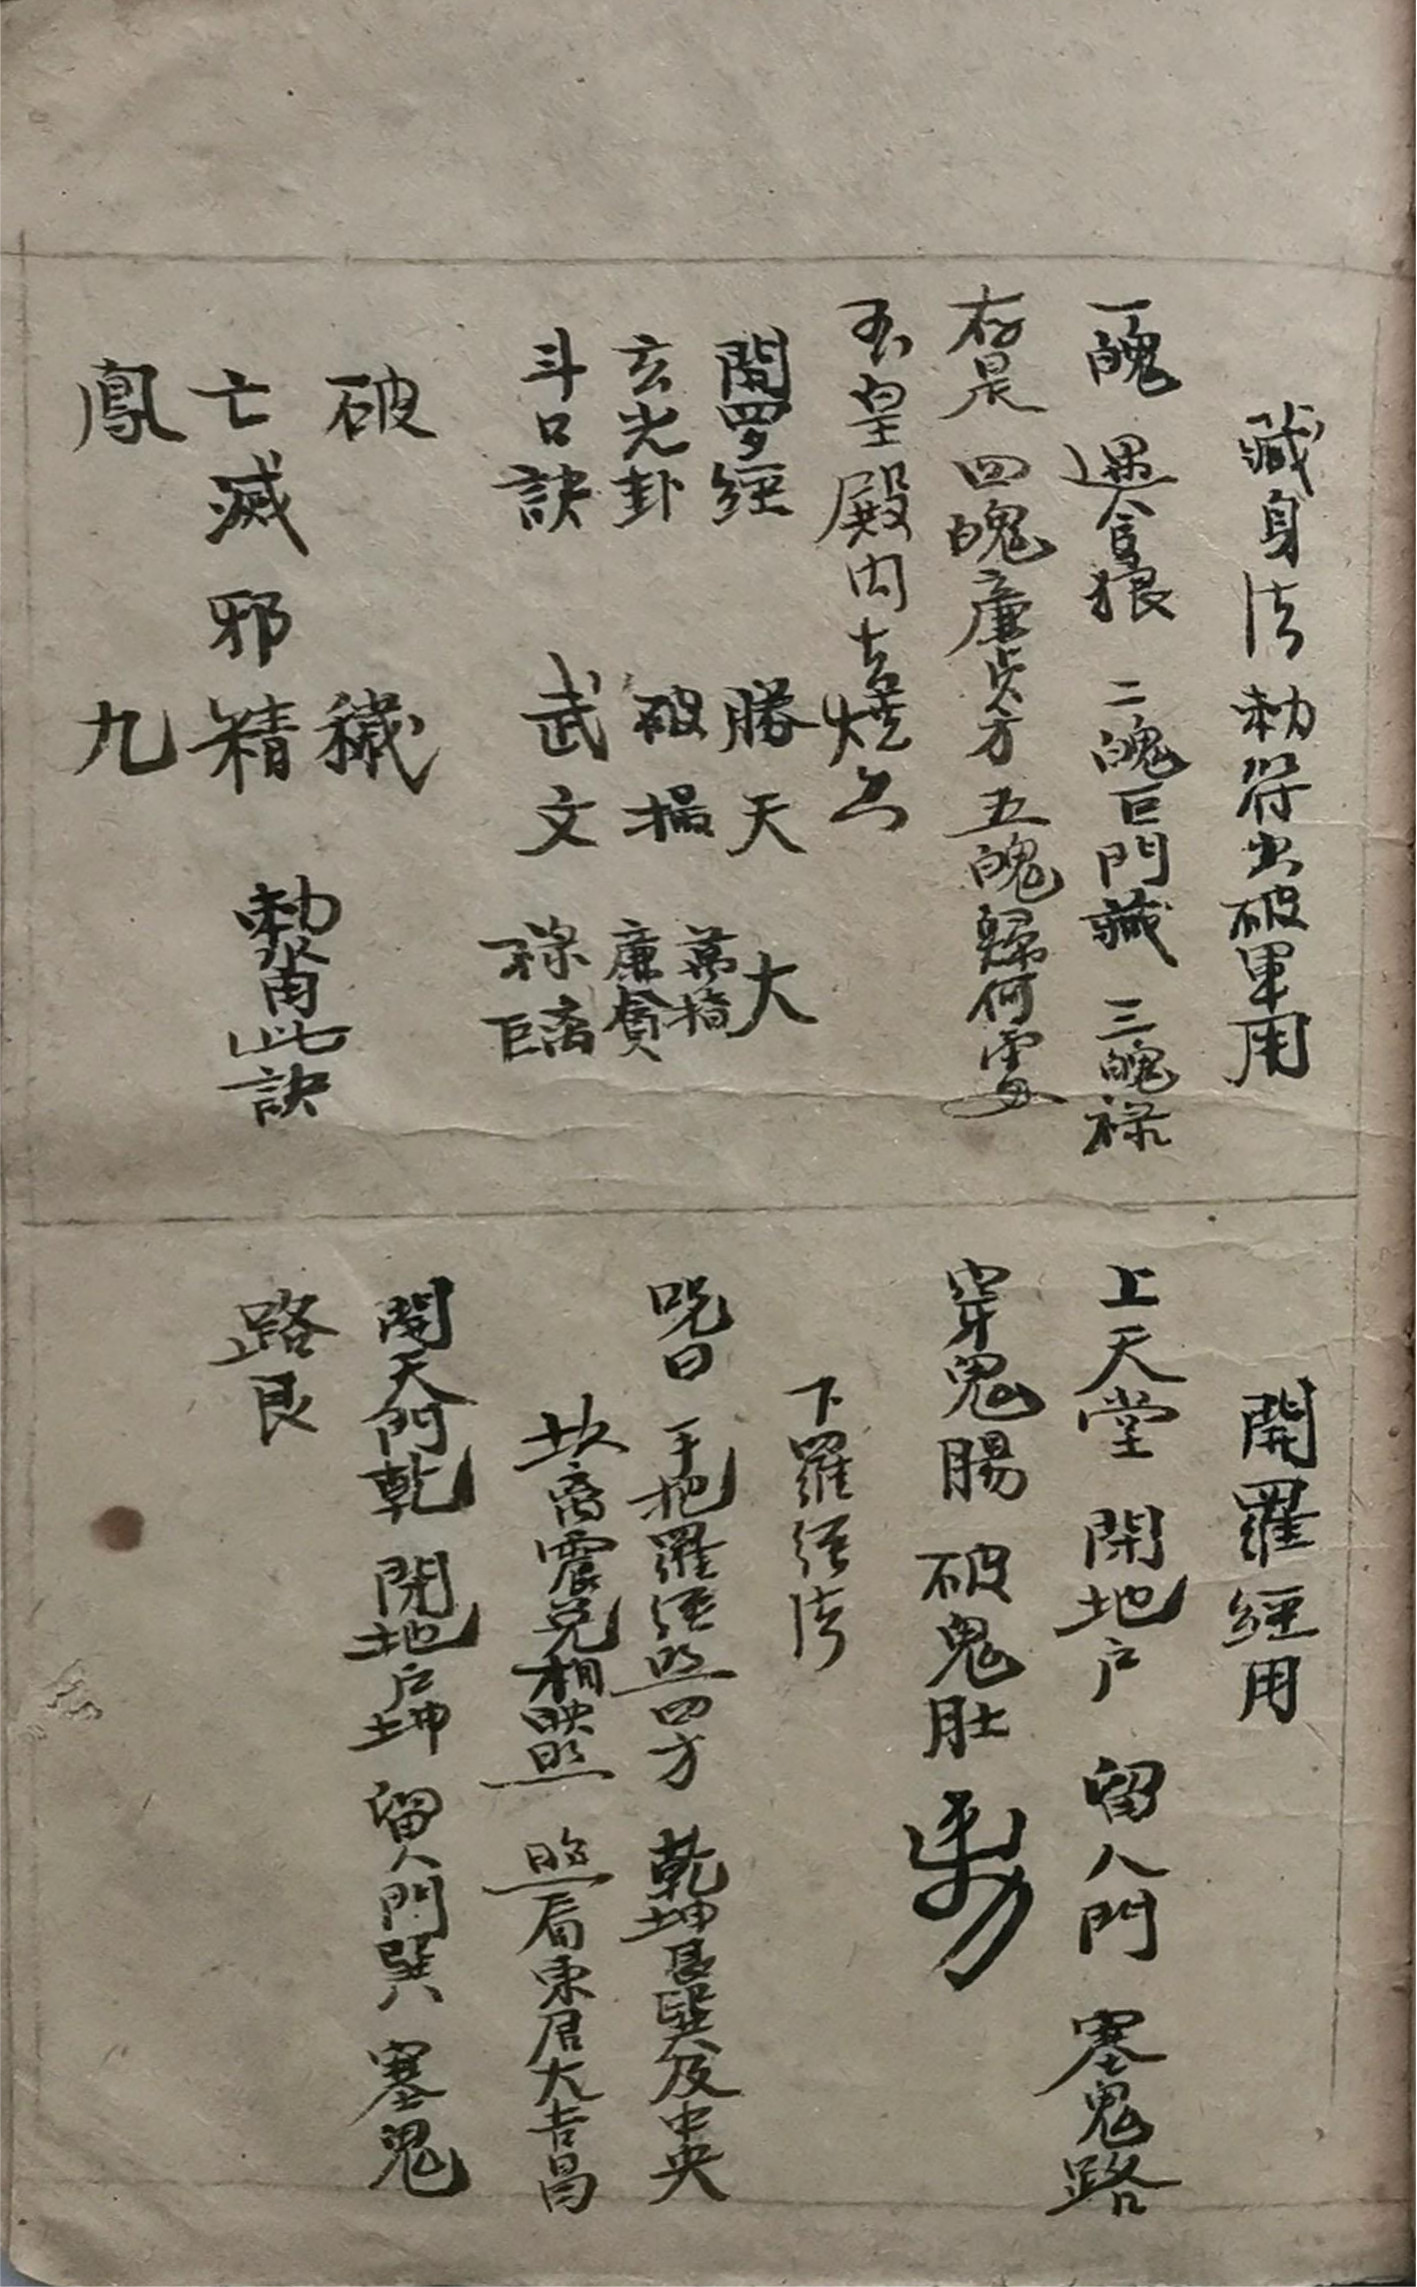 藏身法 勅符出破軍用
一魄 遇食狼 二魄巨門藏 三魄禄
存晃 四魄廉貞方 五魄歸何處
玉皇殿内去燒
開罗經 勝天 大
玄光卦 破 廉貪
斗口訣 武文 禄 巨离
破 穢
亡滅邪精 勅 此訣
鳳 九
開羅經用
上天堂 閉地户 留人門 塞鬼路
穿鬼腸 破鬼肚
下羅經法
咒曰 手把羅經照四方 乾坤艮巽及中央
坎离震兑相映照 照看東居大吉昌
開天門乾 閉地户坤 留人門巽 塞鬼
路艮